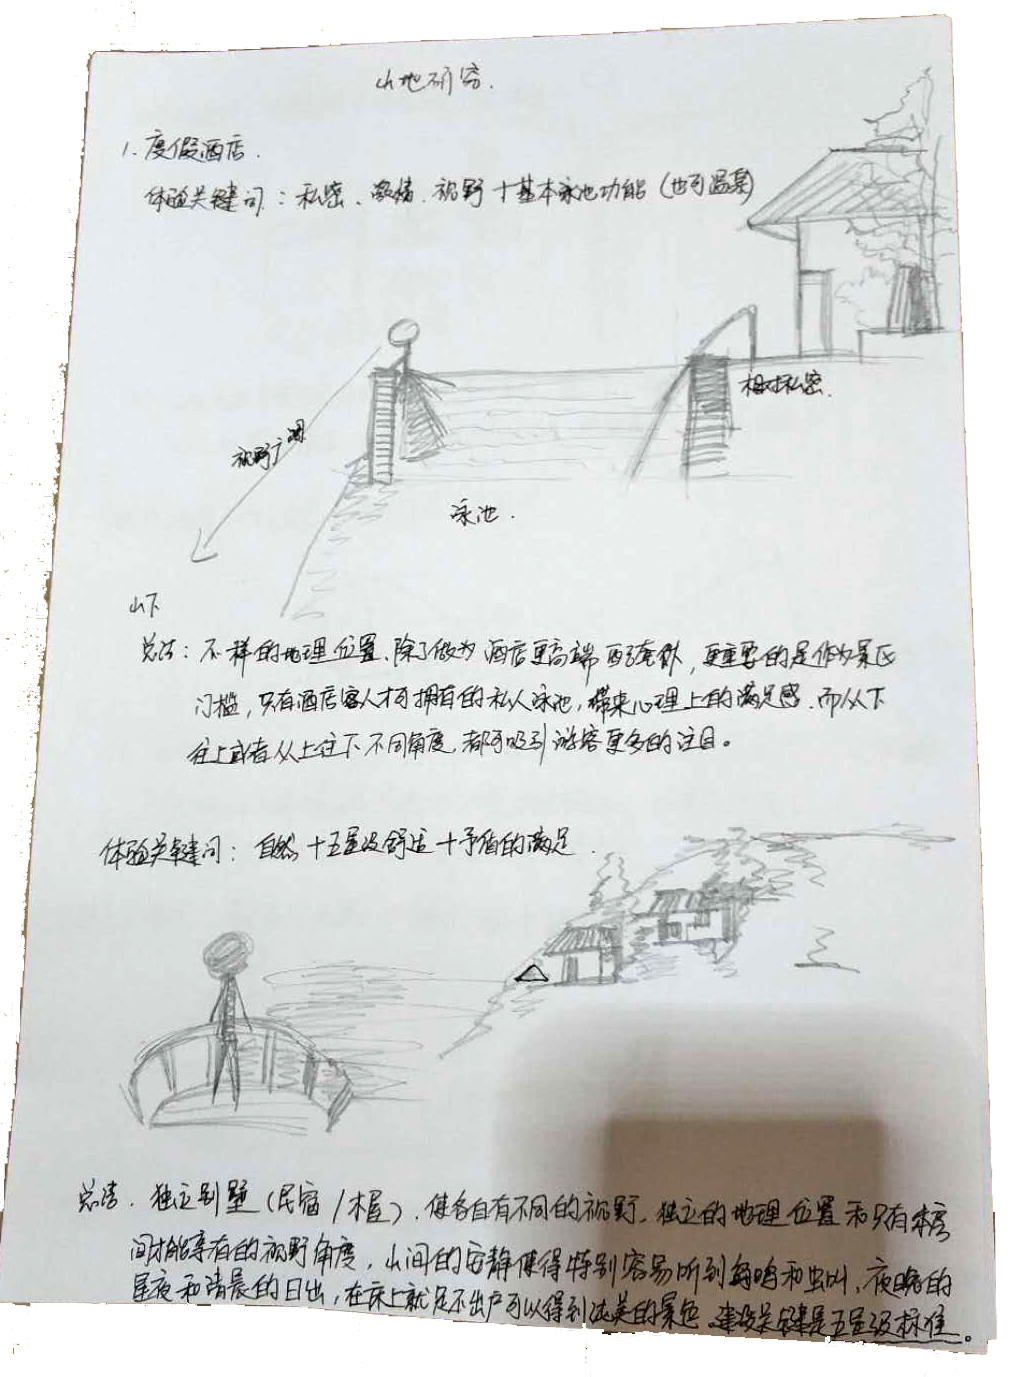 山地研究.
1. 度假酒店.
体验关键词：私密、激情、视野＋基本泳池功能（也可温泉）
相对私密.
视野广阔
泳池.
山下
总结：不一样的地理位置、除了做为酒店更高端配套外，更重要的是作为景区
门槛，只有酒店客人才可拥有的私人泳池，带来心理上的满足感.而从下
往上或者从上往下不同角度，都可吸引游客更多的注目。
体验关键词：自然＋五星级舒适＋矛盾的满足.
总结. 独立别墅（民宿/木屋）.使各自有不同的视野.独立的地理位置和只有本房
间才能享有的视野角度，山间的安静使得特别容易听到鸟鸣和虫叫、夜晚的
星夜和清晨的日出，在床上就足不出户可以得到的美的景色.建设关键是五星级标准。